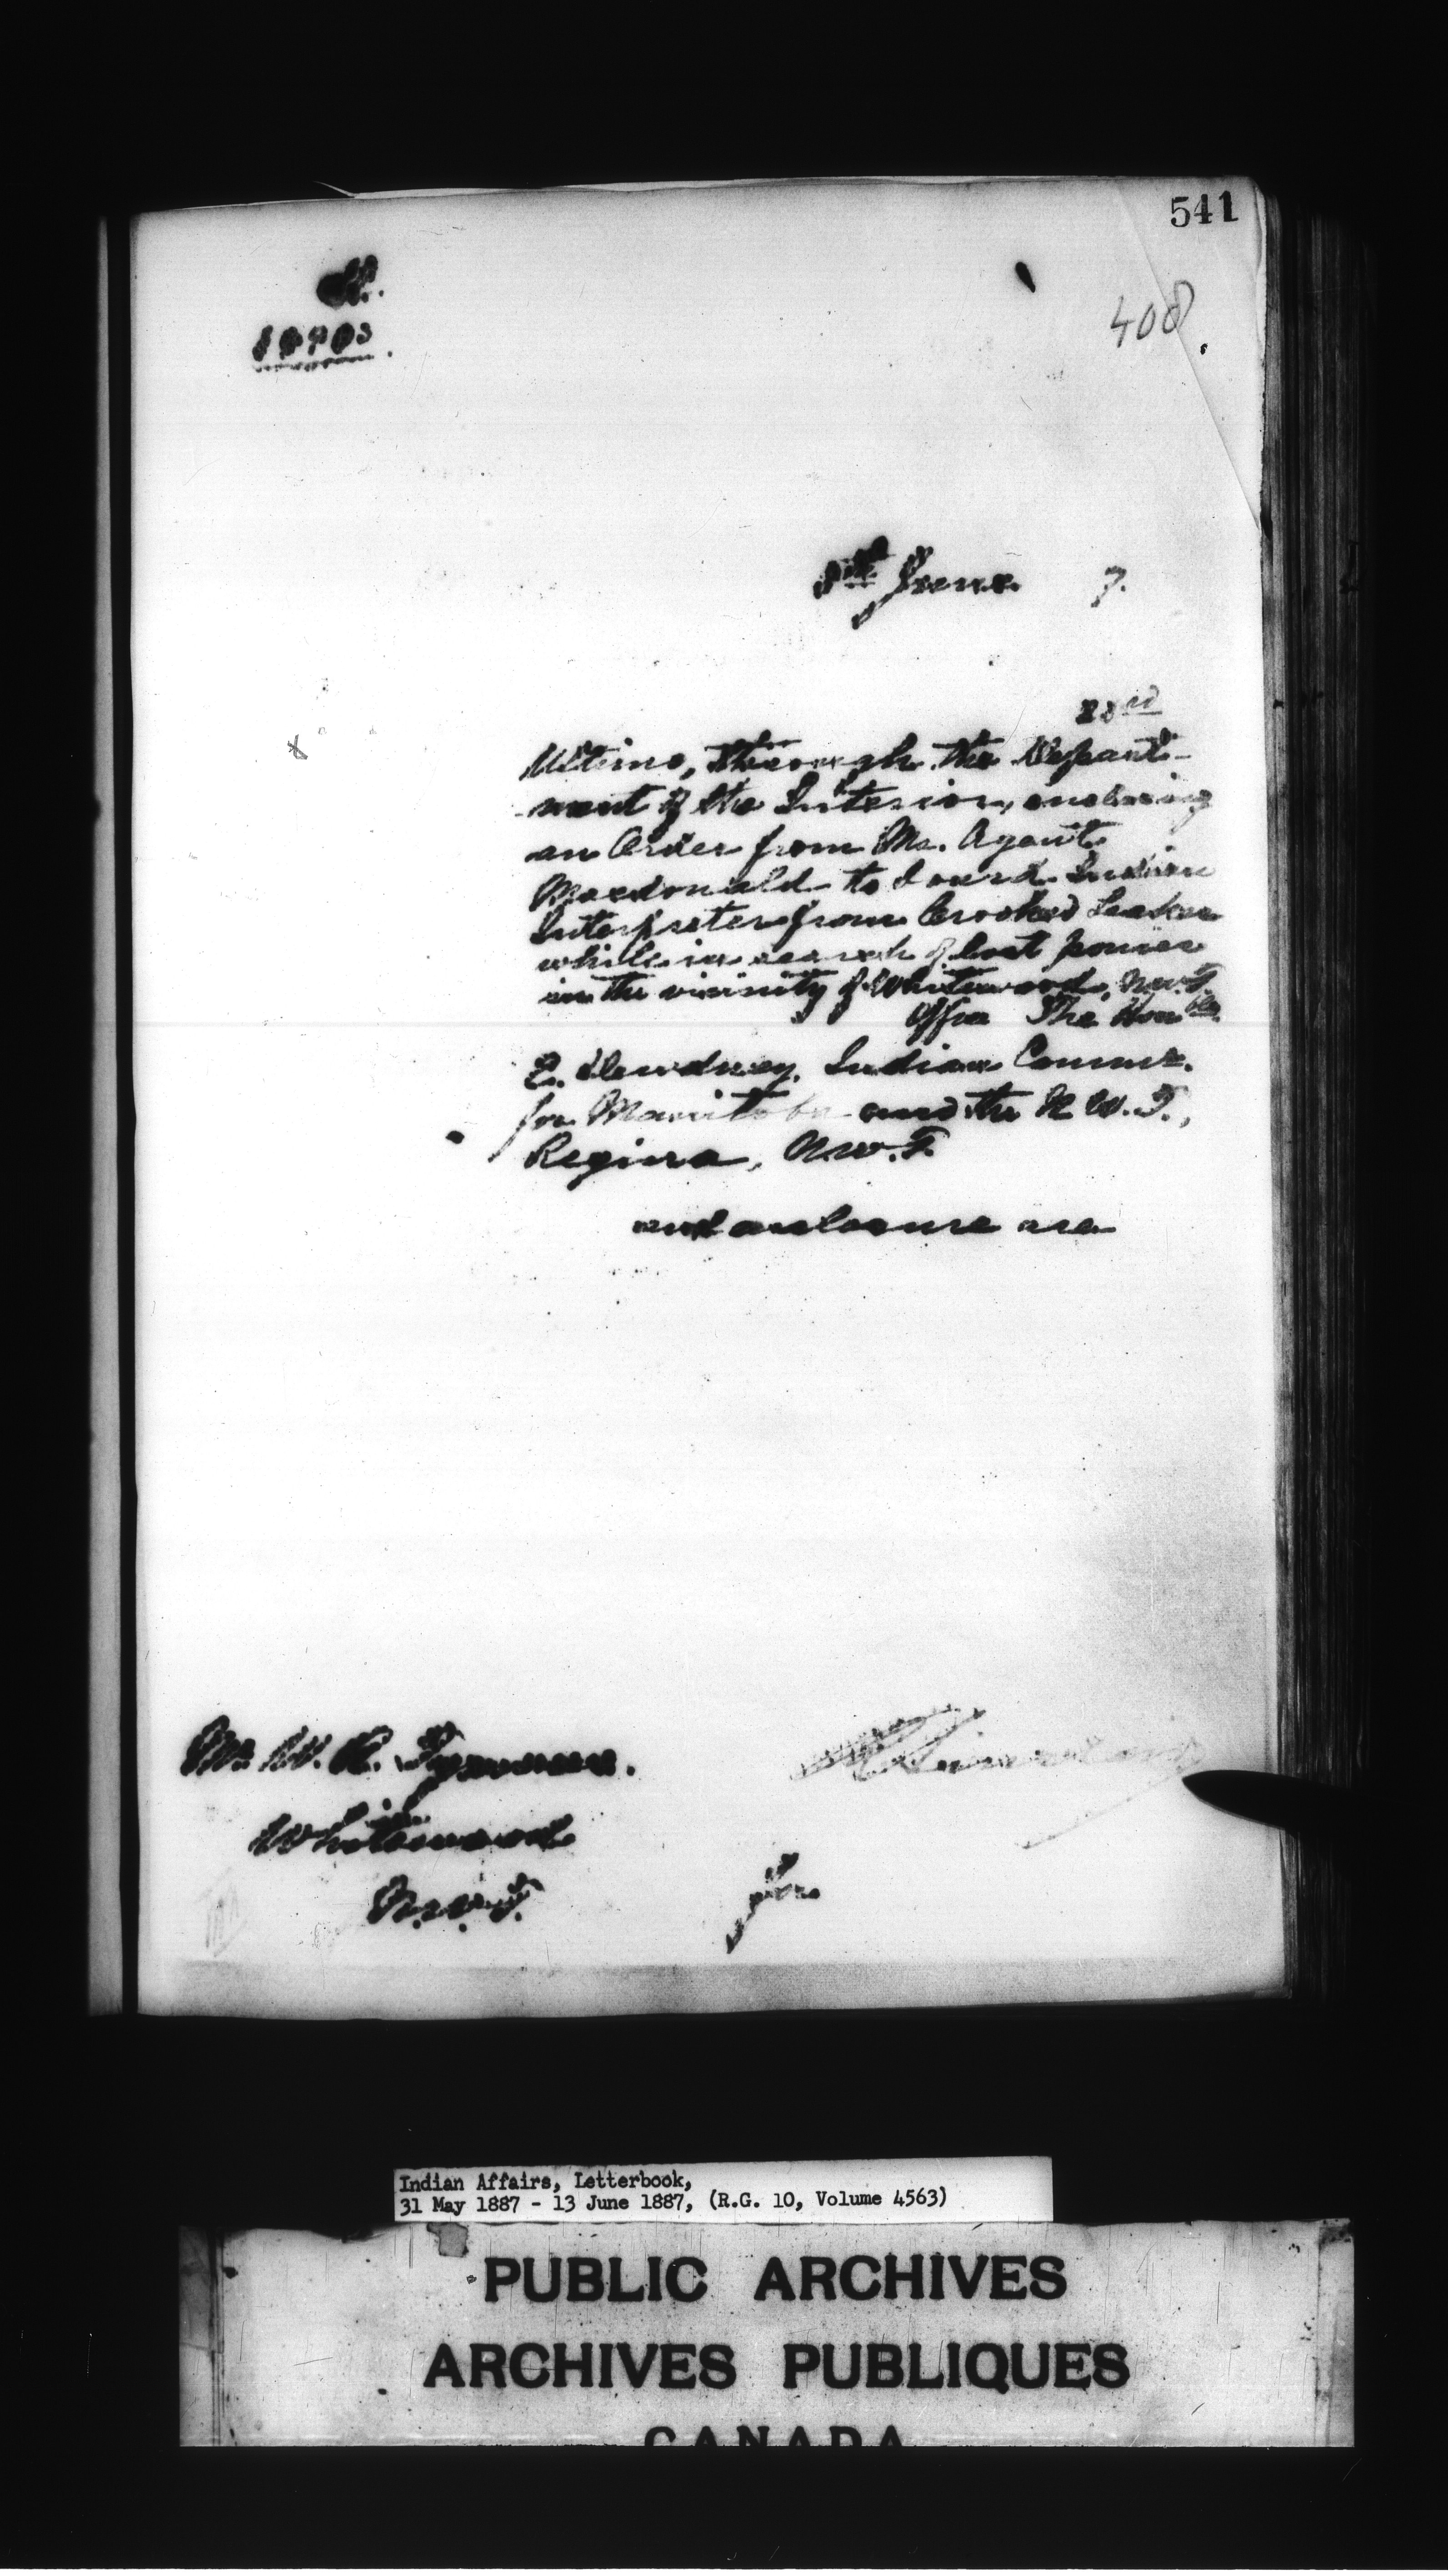 541
408
8th June 7.
23rd
Ultimo, through the Depart-
ment of the Interior, enclosing
an Order from Mr. Agent
Macdonald to board Indian
Interpreter from Crooked Lakes
while in search of lost ponies
in the vicinity of Whitewood, N.W.T.
Office The Honble
E. Dewdney, Indian Commr.
for Manitoba and the N.W.T.,
Regina, N.W.T.
and enclosure are
Mr. W. R.
Whitewood
N.W.T.
for
Indian Affairs, Letterbook,
31 May 1887 - 13 June 1887, (R.G. 10, Volume 4563)
PUBLIC ARCHIVES
ARCHIVES PUBLIQUES
CANADA